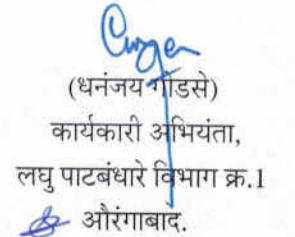 (धनंजय गोडसे)
कार्यकारी अभियंता,
लघु पाटबंधारे विभाग क्र.1
औरंगाबाद.